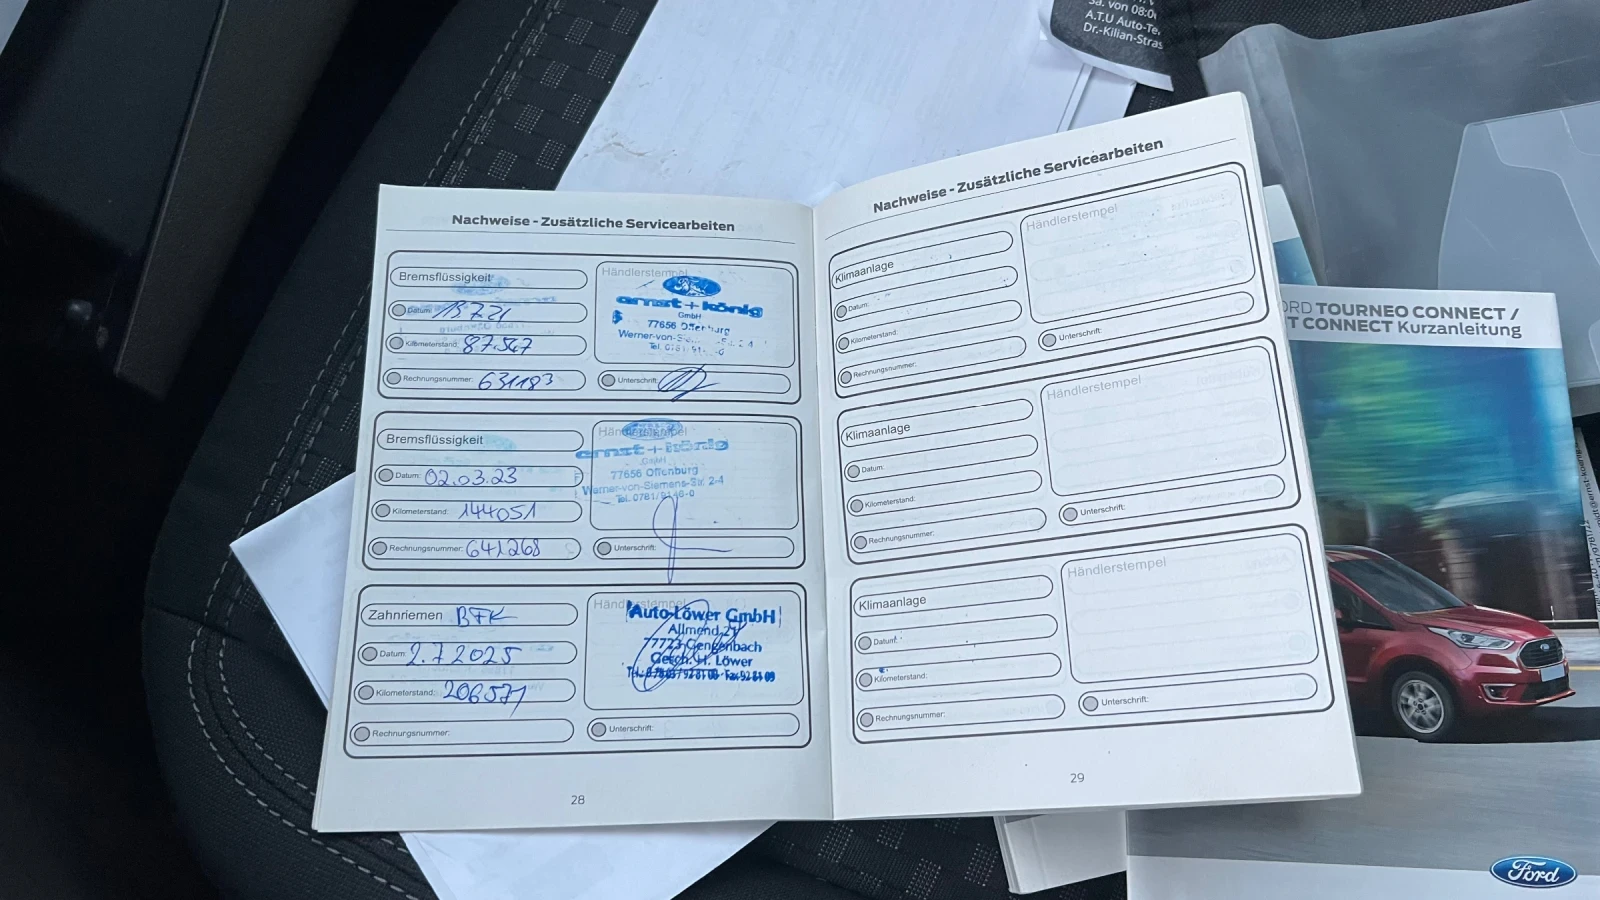 Sa. von 08:0
A.T.U Auto-Te
Dr.-Kilian-Stras
Nachweise - Zusätzliche Servicearbeiten
Bremsflüssigkeit
Datum: 15.7.21
Kilometerstand: 87.547
Rechnungsnummer: 631183
Händlerstempel
ernst+könig
GmbH
77656 Offenburg
Werner-von-Sie
2-4
Tel. 0781/
Unterschrift:
Bremsflüssigkeit
Datum: 02.03.23
Kilometerstand: 144051
Rechnungsnummer: 641268
Händlerstempel
ernst+könig
GmbH
77656 Offenburg
Werner-von-Siemens-Str. 2-4
Tel. 0781/9146-0
Unterschrift:
Zahnriemen BFK
Datum: 2.7.2025
Kilometerstand: 206571
Rechnungsnummer:
Händlerstempel
Auto-Löwer GmbH
Allmend 21
77723 Gengenbach
Gesch. H. Löwer
Unterschrift:
28
Nachweise - Zusätzliche Servicearbeiten
Klimaanlage
Datum:
Kilometerstand:
Rechnungsnummer:
Händlerstempel
Unterschrift:
Klimaanlage
Datum:
Kilometerstand:
Rechnungsnummer:
Händlerstempel
Unterschrift:
Klimaanlage
Datum:
Kilometerstand:
Rechnungsnummer:
Händlerstempel
Unterschrift:
29
ORD TOURNEO CONNECT /
T CONNECT Kurzanleitung
Ford